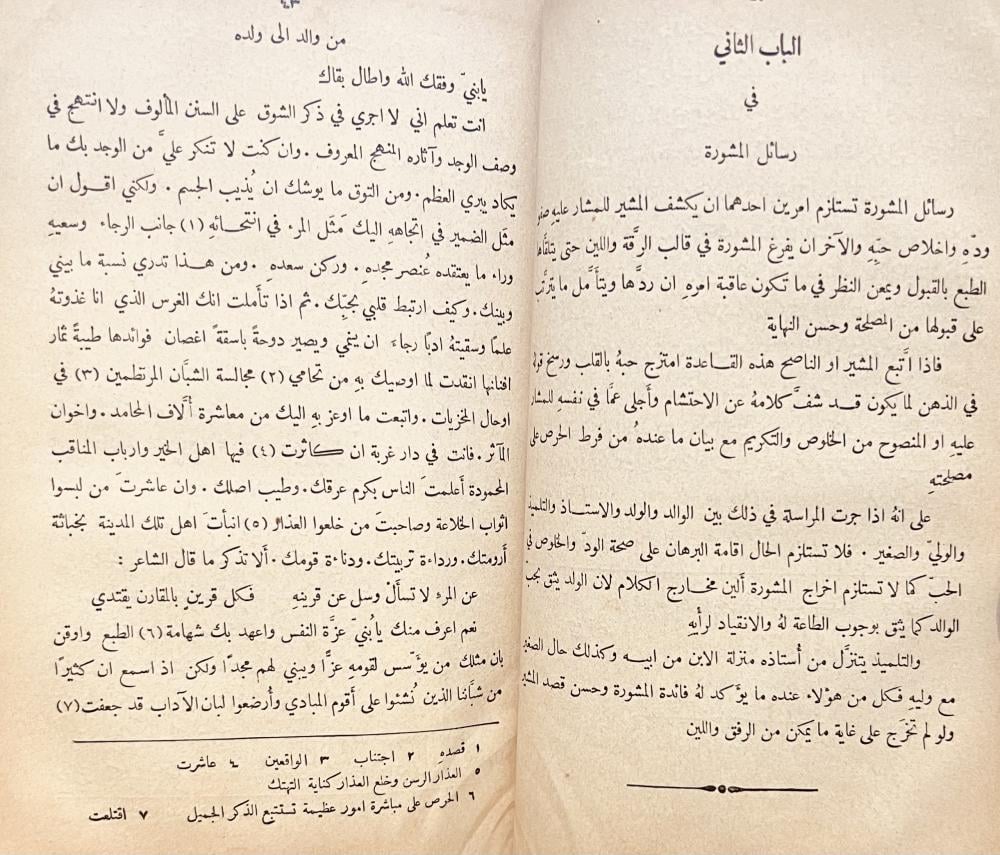 الباب الثاني
في
رسائل المشورة
رسائل المشورة تستلزم امرين احدهما ان يكشف المشير للمشار عليهِ صفو
ودّهِ واخلاص حبّهِ والآخر ان يفرغ المشورة في قالب الرقّة واللين حتى يتلقاها
الطبع بالقبول ويمعن النظر في ما تكون عاقبة امرهِ ان ردّها ويتأمل ما يترتّب
على قبولها من المصلحة وحسن النهاية
فاذا اتّبع المشير او الناصح هذه القاعدة امتزج حبهُ بالقلب ورسخ قولهُ
في الذهن لما يكون قد شفّ كلامهُ عن الاحتشام وأجلى عمّا في نفسهِ للمشار
عليهِ او المنصوح من الخلوص والتكريم مع بيان ما عندهُ من فرط الحرص على
مصلحتهِ
على انهُ اذا جرت المراسلة في ذلك بين الوالد والولد والاستاذ والتلميذ
والوليّ والصغير . فلا تستلزم الحال اقامة البرهان على صحة الودّ والخلوص في
الحبّ كما لا تستلزم اخراج المشورة ألين مخارج الكلام لان الولد يثق بحبّ
الوالد كما يثق بوجوب الطاعة لهُ والانقياد لرأيهِ
والتلميذ يتنزّل من أستاذه منزلة الابن من ابيه وكذلك حال الصغير
مع وليهِ فكل من هؤلاء عنده ما يؤكد لهُ فائدة المشورة وحسن قصد المشير
ولو لم تخرَج على غاية ما يمكن من الرفق واللين
٤٣
من والد الى ولده
يابنيّ وفقك الله واطال بقاك
انت تعلم اني لا اجري في ذكر الشوق على السنن المألوف ولا انتهج في
وصف الوجد وآثاره المنهج المعروف . وان كنت لا تنكر عليَّ من الوجد بك ما
يكاد يبري العظم . ومن التوق ما يوشك ان يُذيب الجسم . ولكني اقول ان
مثَل الضمير في اتجاههِ اليك مَثَل المرء في انتحائهِ (١) جانب الرجاء وسعيهِ
وراء ما يعتقده عُنصر مجدهِ . وركن سعدهِ . ومن هذا تدري نسبة ما بيني
وبينك . وكيف ارتبط قلبي بحبّك . ثم اذا تأملت انك الغرس الذي انا غذوتهُ
علماً وسقيتهُ ادبًا رجاء ان ينمي ويصير دوحةً باسقةً اغصان فوائدها طيبةً ثمار
افنانها انقدت لما اوصيك بهِ من تحامي (٢) مجالسة الشبّان المرتطمين (٣) في
اوحال الخزيات . واتبعت ما اوعز بهِ اليك من معاشرة أُلّاف المحامد . واخوان
المآثر . فانت في دار غربة ان كاثرت (٤) فيها اهل الخير وارباب المناقب
المحمودة أعلمتَ الناس بكرم عرقك . وطيب اصلك . وان عاشرتَ من لبسوا
اثواب الخلاعة وصاحبتَ من خلعوا العذار (٥) انبأتَ اهل تلك المدينة بخباثة
أرومتك . ورداءة تربيتك . ودناءة قومك . ألا تذكر ما قال الشاعر :
عن المرء لا تسأَلْ وسل عن قرينهِ فكل قرينٍ بالمقارن يقتدي
نعم اعرف منك يابُنيّ عزَّة النفس واعهد بك شهامة (٦) الطبع واوقن
بان مثلك من يؤسس لقومهِ عزًّا ويبني لهم مجدًا ولكن اذ اسمع ان كثيرًا
من شبَّاننا الذين نُشئوا على أقوم المبادي وأُرضعوا لبان الآداب قد جعفت (٧)
١ قصدهِ ٢ اجتناب ٣ الواقعين ٤ عاشرت
٥ العذار الرسن وخلع العذار كناية التهتك
٦ الحرص على مباشرة امور عظيمة تستتبع الذكر الجميل ٧ اقتلعت